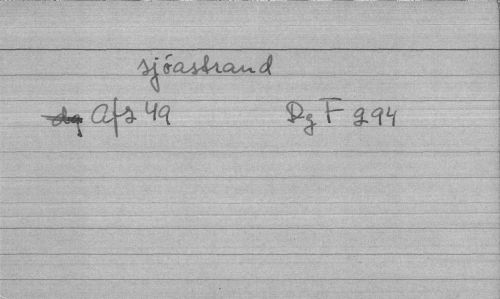 sjóastrand
Afs 49 Rg F 294